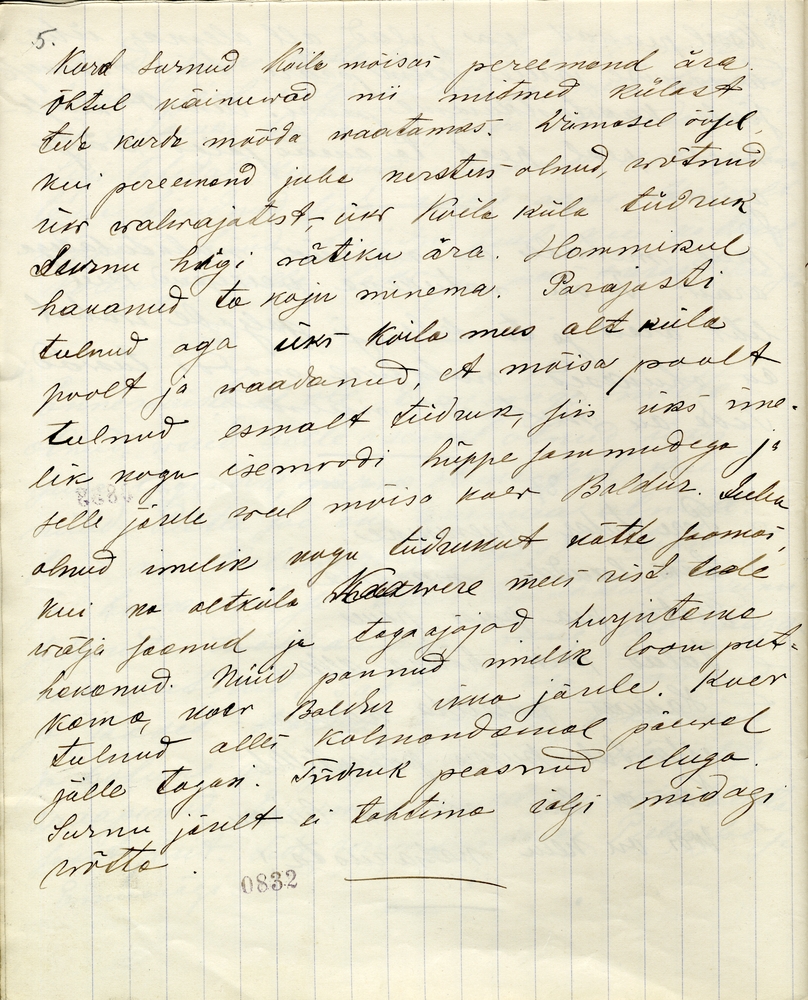 5.
Kord surnud Koila mõisas pereemand ära.
Õhtul käinuwad nii mitmed külast
teda korda mööda waatamas. Wiimasel öösel,
kui pereemand juba kerstus olnud, wõtnud
üks walwajatest, üks Koila küla tüdruk
Surnu higi rätiku ära. Hommikul
hakanud ta koju minema. Parajasti
tulnud aga üks Koila mees alt küla
poolt ja waadanud, et mõisa poolt
tulnud esmalt tüdruk, siis üks ime-
lik kogu isemoodi hüppe sammudega ja
selle järele weel mõisa koer Baldur. Juba
olnud imelik kogu tüdrukut kätte saamas,
kui ka altküla mees rist teele
wälja saanud ja tagaajajad hurjutama
hakanud. Nüüd pannud imelik loom put-
kama, koer Baldur ikka järele. Koer
tulnud alles kolmandamal päewal
jälle tagasi. Tüdruk peasnud eluga.
Surnu järelt ei tohtima ialgi midagi
wõtta.
0832